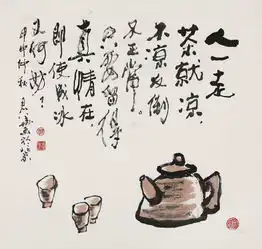 人一走
茶就凉
不凉反倒
又正常
只要留得
真情在
即使成冰
又何妨
甲申仲秋